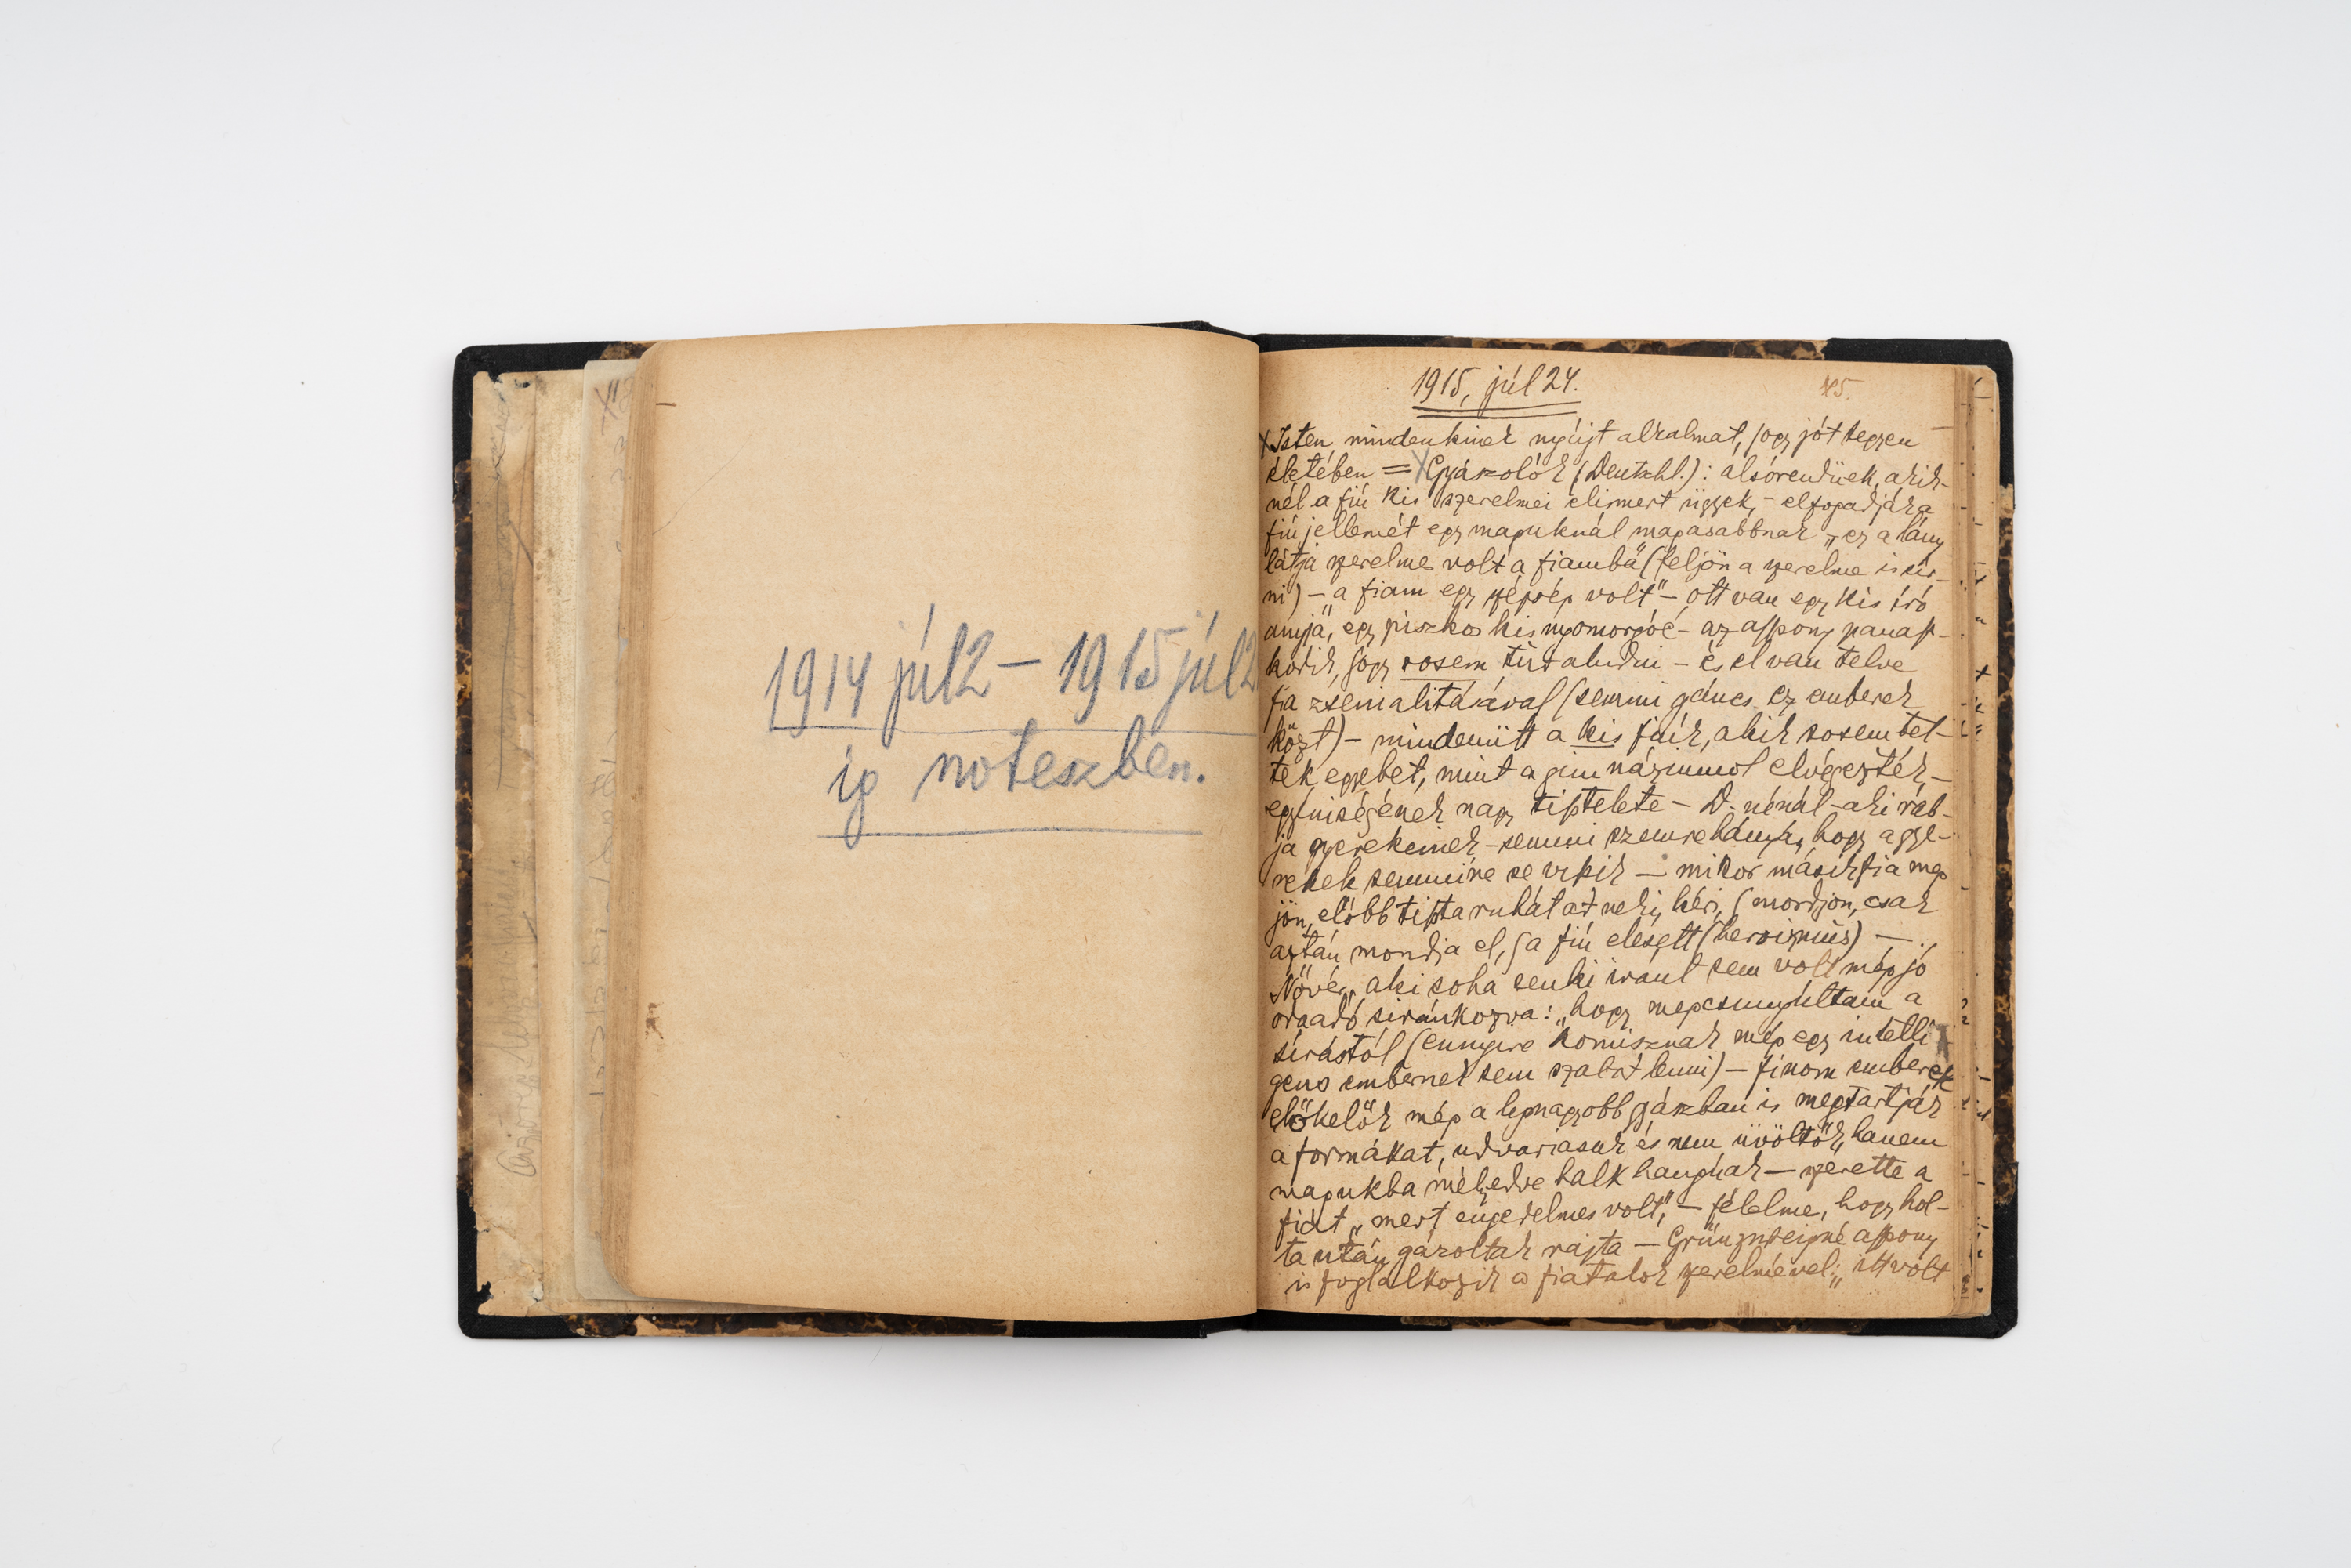 1914 júl 2 – 1915 júl 2
ig noteszben.
1915, júl 24.
45.
x Isten mindenkinek nyújt alkalmat, hogy jót tegyen
életében = x Gyászolók (Deutschl.): alsórendüek, akik-
nél a fiú kis szerelmei elismert ügyek, – elfogadják a
fiú jellemét egy maguknál magasabbnak „ez a lány
látja szerelmes volt a fiamba" (feljön a szerelme is sír-
ni) – a fiam egy szépség volt" – ott van egy kis író
anyja, egy piszkos kis nyomorgóé – az asszony panasz-
kodik, hogy sosem tud aludni – és el van telve
fia zsenialitásával (semmi gáncs ez emberek
közt) – mindenütt a kis fiúk, akik sosem tet-
tek egyebet, mint a gimnáziumot elvégezték, –
egyéniségének nagy tisztelete – D. nénál – aki rab-
ja gyerekeinek – semmi szemrehányás, hogy a gye-
rekek semmire se viszik – mikor másik fia meg
jön, előbb tiszta ruhát ad neki, kéri, mosdjon, csak
aztán mondja el, a fiú elesett (heroizmus) –
Nővér, aki soha senki iránt sem volt még jó
óraadó siránkozva: „hogy megcsunyúltam a
sírástól (ennyire komisznak még egy intelli-
gens embernek sem szabad lenni) – finom emberek
előkelők még a legnagyobb gyászban is megtartják
a formákat, udvariasak és nem üvöltők, hanem
magukba mélyedve halk hanguak – szerette a
fiát „mert engedelmes volt", – félelme, hogy hol-
ta után gázoltak rajta – asszony
is foglalkozik a fiatalok szerelmével: „itt volt